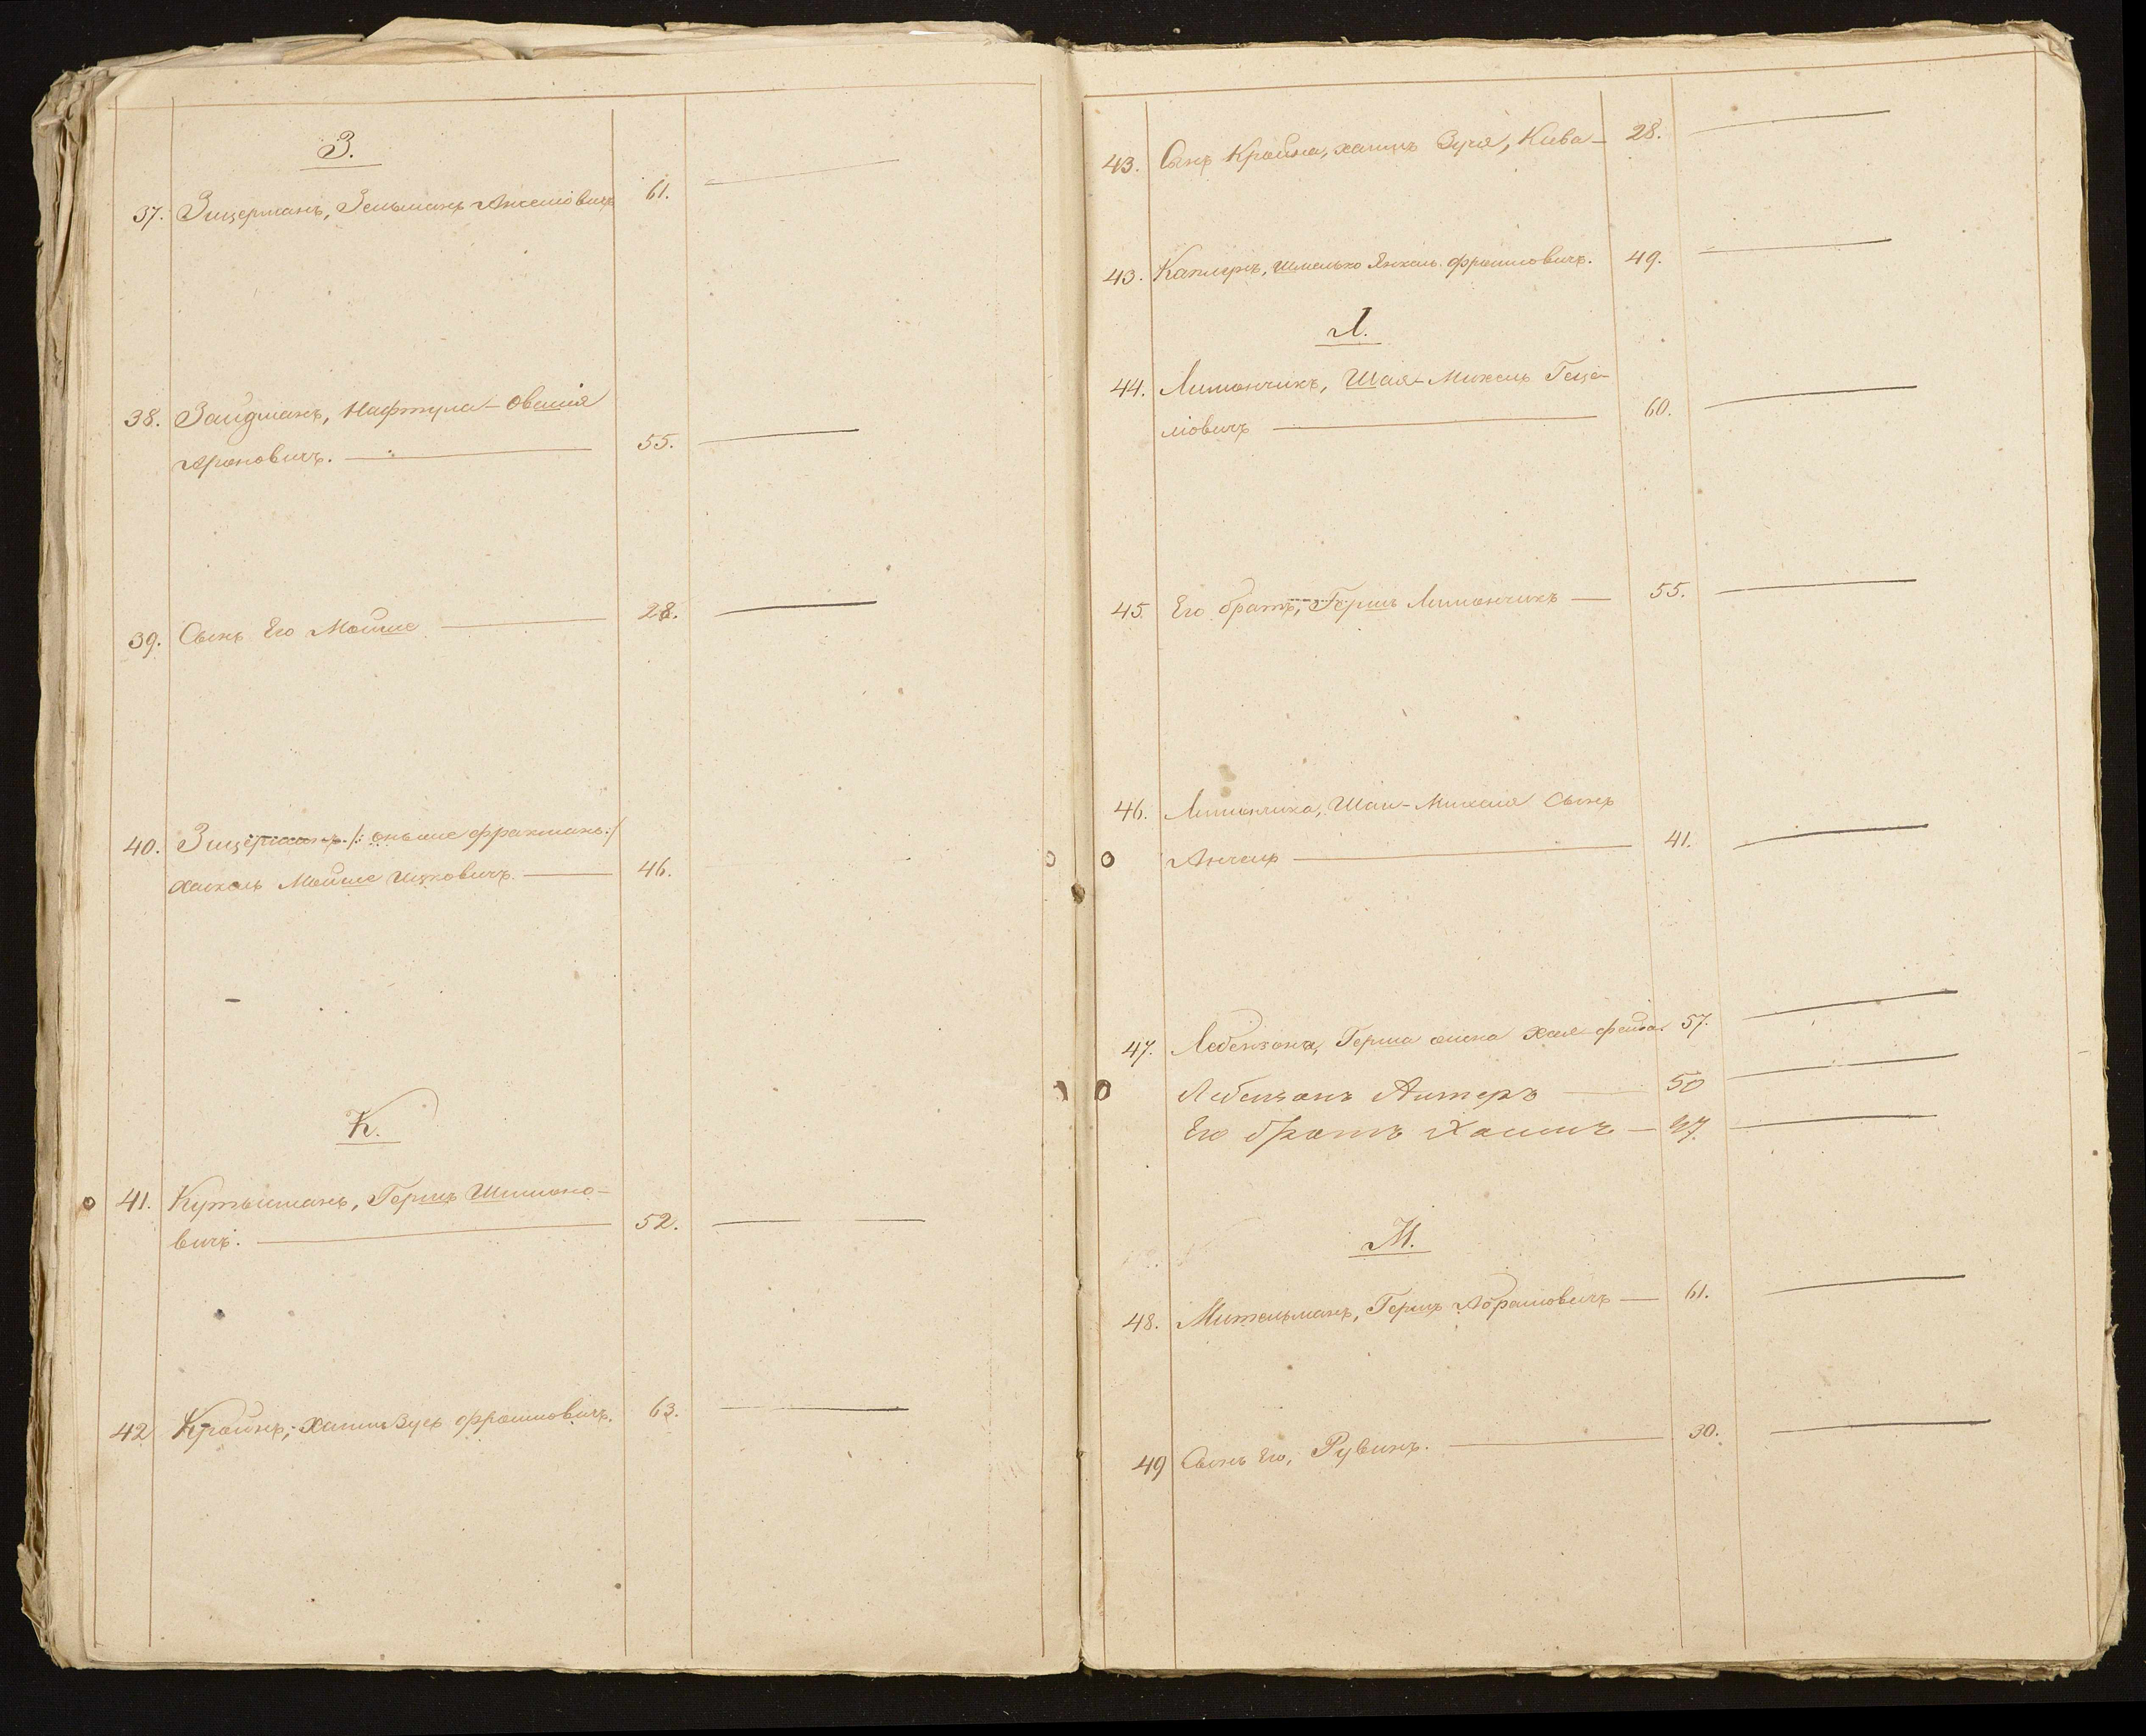 З.
37. Зицерманъ, Зельманъ Анселіовичъ 61.
38. Зайдманъ, Нафтула-Овшія
Ароновичъ. 55.
39. Сынъ Его Мойше 28.
40. Зицерманъ /: онъ-же Фракманъ:/
Хаскель Мойше Ицковичъ. 46.
К.
41. Кутышманъ, Гершъ Шимоно-
вичъ. 52.
42 Крайнъ, Хаимъ Зусь Фроимовичъ. 63.
43. Сынъ Крайна, Хаимъ Зуся, Кива 28.
43. Каплеръ, Шмелько Янкель Фроимовичъ. 49.
Л.
44. Лимончикъ, Шая-Михель Геце-
ліовичъ 60.
45. Его братъ, Гершъ Лимончикъ 55.
46. Лимончика, Шаи-Михеля сынъ
Анчель 41.
47. Лебензона, Герша жена Хая-Фейга 57.
Лебензонъ Алтеръ 50
Его братъ Хаимъ 47.
М.
48. Мительманъ, Гершъ Абрамовичъ 61.
49 Сынъ Его, Рувинъ. 30.